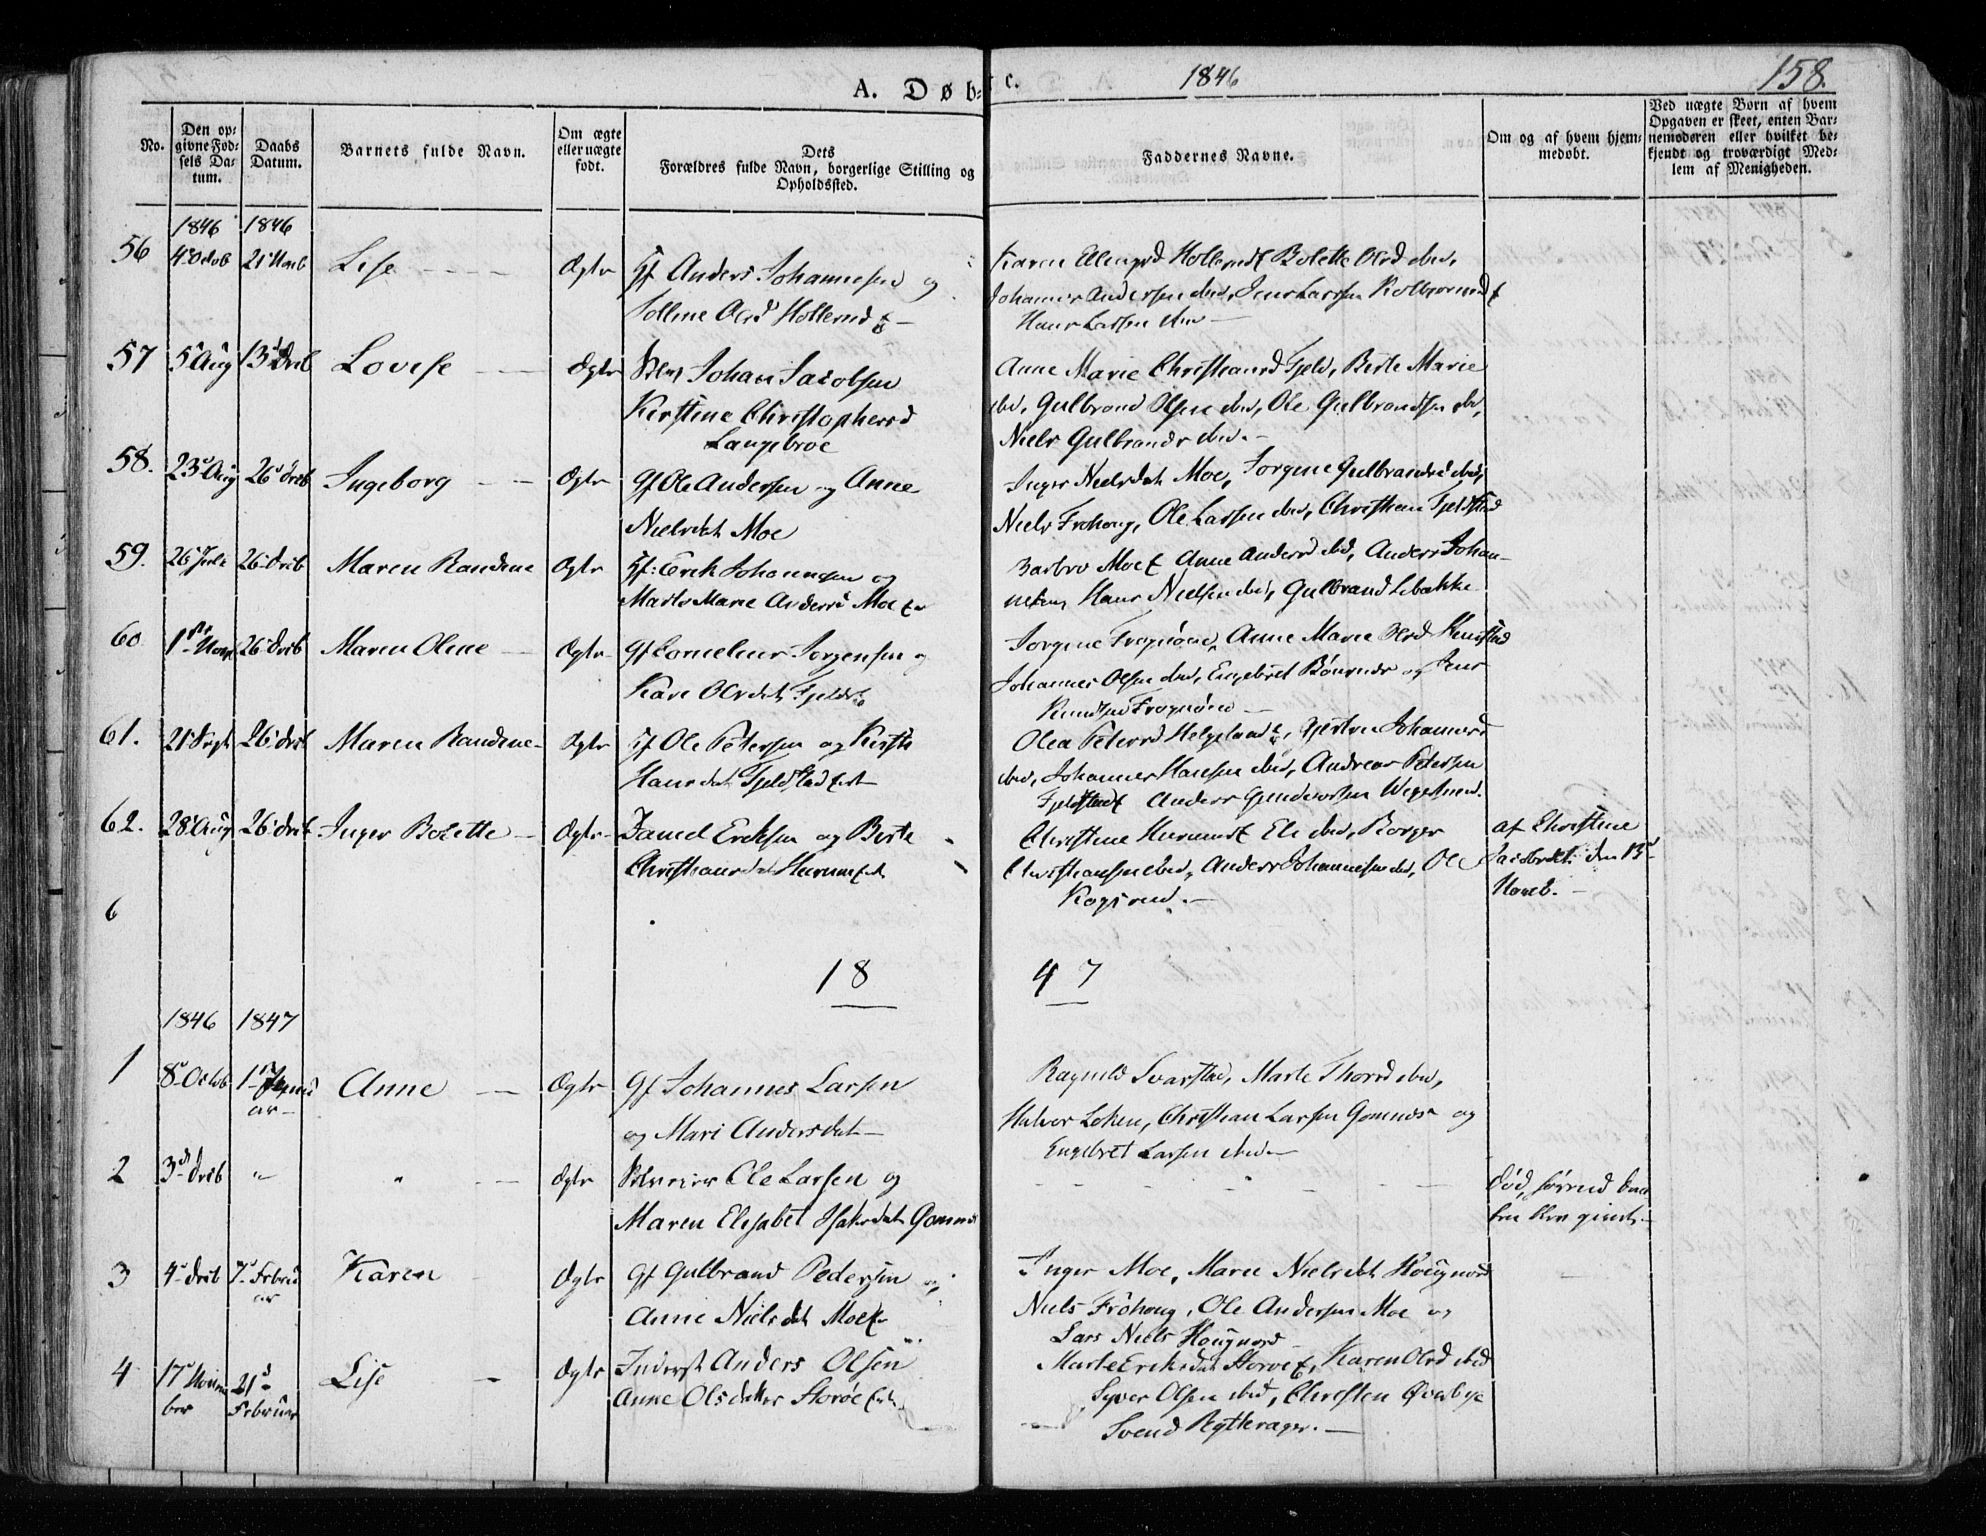 A. Døb-
c.
1846
158.
No.
Den op-
givne Fød-
sels Da-
tum.
Daabs
Datum.
Barnets fulde Navn.
Om ægte
eller uægte
født.
Dets
Forældres fulde Navn, borgerlige Stilling og
Opholdssted.
Faddernes Navne.
Om og af hvem hjem-
medøbt.
Ved uægte Born af hvem
Opgaven er skeet, enten Bar-
nemoderen eller hvilket be-
kjendt og troværdigt Med-
lem af Menigheden.
1846 1846
56 4 Octob 21 Novb Lise Ægte Gf Anders Johannesen og
Olsd
Karen Bolette Olsd ibid,
Johannes Andersen ibid, Jens Larsen
Hans Larsen ibid
57 5 Aug 13 Decb Lovise Ægte Johan Jacobsen
Kirstine Christophersd
Langebroe
Anne Marie Christiansd Fjeld, Berte Marie
ibid, Gulbrand Olsen ibid, Ole Gulbrandsen ibid,
Niels Gulbrands ibid.
58. 23 Aug 26 Decb Ingeborg Ægte Gf Ole Andersen og Anne
Nielsdat Moe
Inger Nielsdat Moe, Jorgine Gulbrandsd ibid,
Niels Frøhoug, Ole Larsen ibid, Christian Fjeldstad
59. 26 Juli 26 Decb Maren Randine Ægte Gf: Erik Johannesen og
Marte Marie Andersd Moe
Barbro Moe Anne Andersd ibid, Anders Johan-
nesen, Hans Nielsen ibid, Gulbrand Libakke
60 1 Novb 26 Decb Maren Oline Ægte Gf Cornelius Jorgensen og
Kari Olsdat
Jorgine Frognøen, Anne Marie Olsd
Johannes Olsen ibid, Engebret Bønsnæs og Jens
Knudsen Frognøen
61. 21 Sept 26 Decb Maren Randine Ægte Gf Ole Petersen og Kirsti
Hansdat Fjeldstad
Olea Petersd Helgeland, Johannesd
ibid, Johannes Hansen ibid, Andreas Petersen
Fjeldstad Anders
62. 28 Aug 26 Decb Inger Bolette Ægte Daniel Eriksen og Berte
Christiansdat
Christine Eli ibid, Borger
Christiansen ibid, Anders Johannesen ibid, Ole
af Christine
Jacobsdat den 13
Novb.
6
18
47
1846 1847
1 8 Octob 1 Janu
ar
Anne Ægte Gf Johannes Larsen
og Mari Andersdat
Ragnild Svarstad, Marte Thorsd ibid,
Halvor Løken, Christian Larsen Gomnæs og
Engebret Larsen ibid
2 3 Decb " " Ægte Ole Larsen og
Maren Elisabet Isaksdat Gomnæs
død,
3 4 Decb 7 Febru
ar
Karen Ægte Gf Gulbrand Pedersen og
Anne Nielsdat Moe
Inger Moe, Maren Nielsdat
Niels Frøhoug, Ole Andersen Moe og
Lars Niels
4 17 Novem
ber
21
Februar
Lise Ægte Inderst Anders Olsen
Anne Olsdatter Storøe
Marte Eriksdat Storøe, Karen Olsd ibid
Syver Olsen ibid, Christen Øverbye
Svend Rytterager.